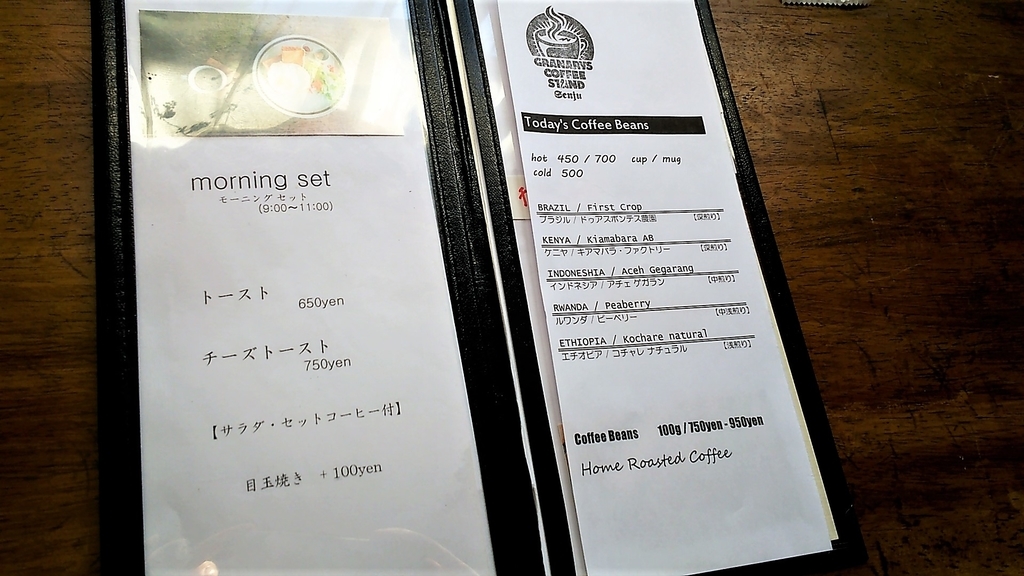 morning set
モーニングセット
(9:00〜11:00)
トースト 650yen
チーズトースト
750yen
【サラダ・セットコーヒー付】
目玉焼き +100yen
GRANARY'S
COFFEE
STAND
Senju
Today's Coffee Beans
hot 450 / 700 cup / mug
cold 500
BRAZIL / First Crop
ブラジル / ドゥアスポンテス農園 【深煎り】
KENYA / Kiamabara AB
ケニヤ / キアマバラ・ファクトリー 【深煎り】
INDONESHIA / Aceh Gegarang
インドネシア / アチェ ゲガラン 【中煎り】
RWANDA / Peaberry
ルワンダ / ピーベリー 【中浅煎り】
ETHIOPIA / Kochare natural
エチオピア / コチャレ ナチュラル 【浅煎り】
Coffee Beans 100g / 750yen - 950yen
Home Roasted Coffee